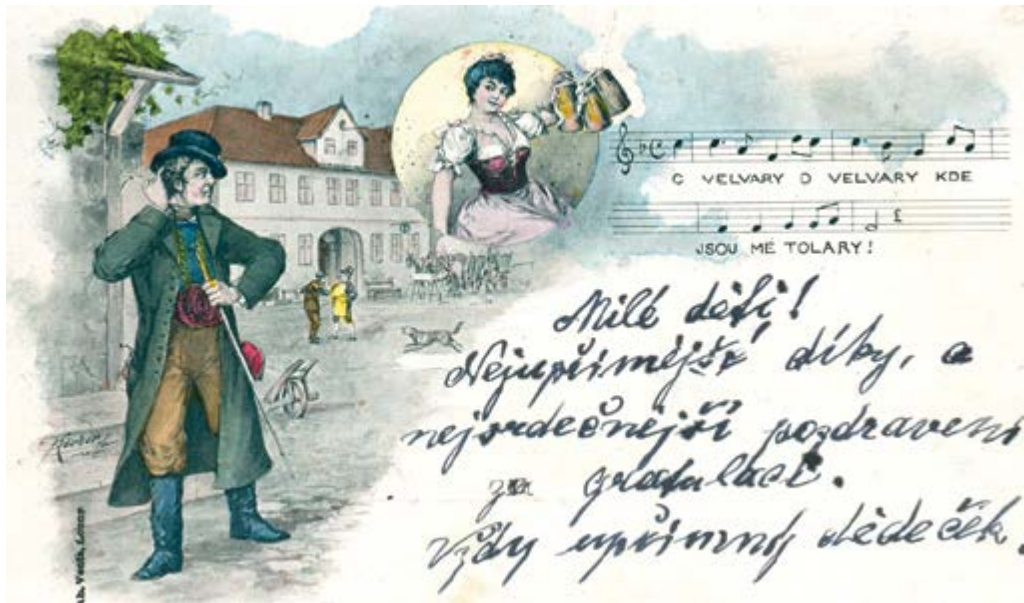 O VELVARY O VELVARY KDE
JSOU MÉ TOLARY!
Milé děti!
Nejupřímější díky, a
nejsrdečnější pozdravení
za gratulaci.
Vždy upřímný dědeček.